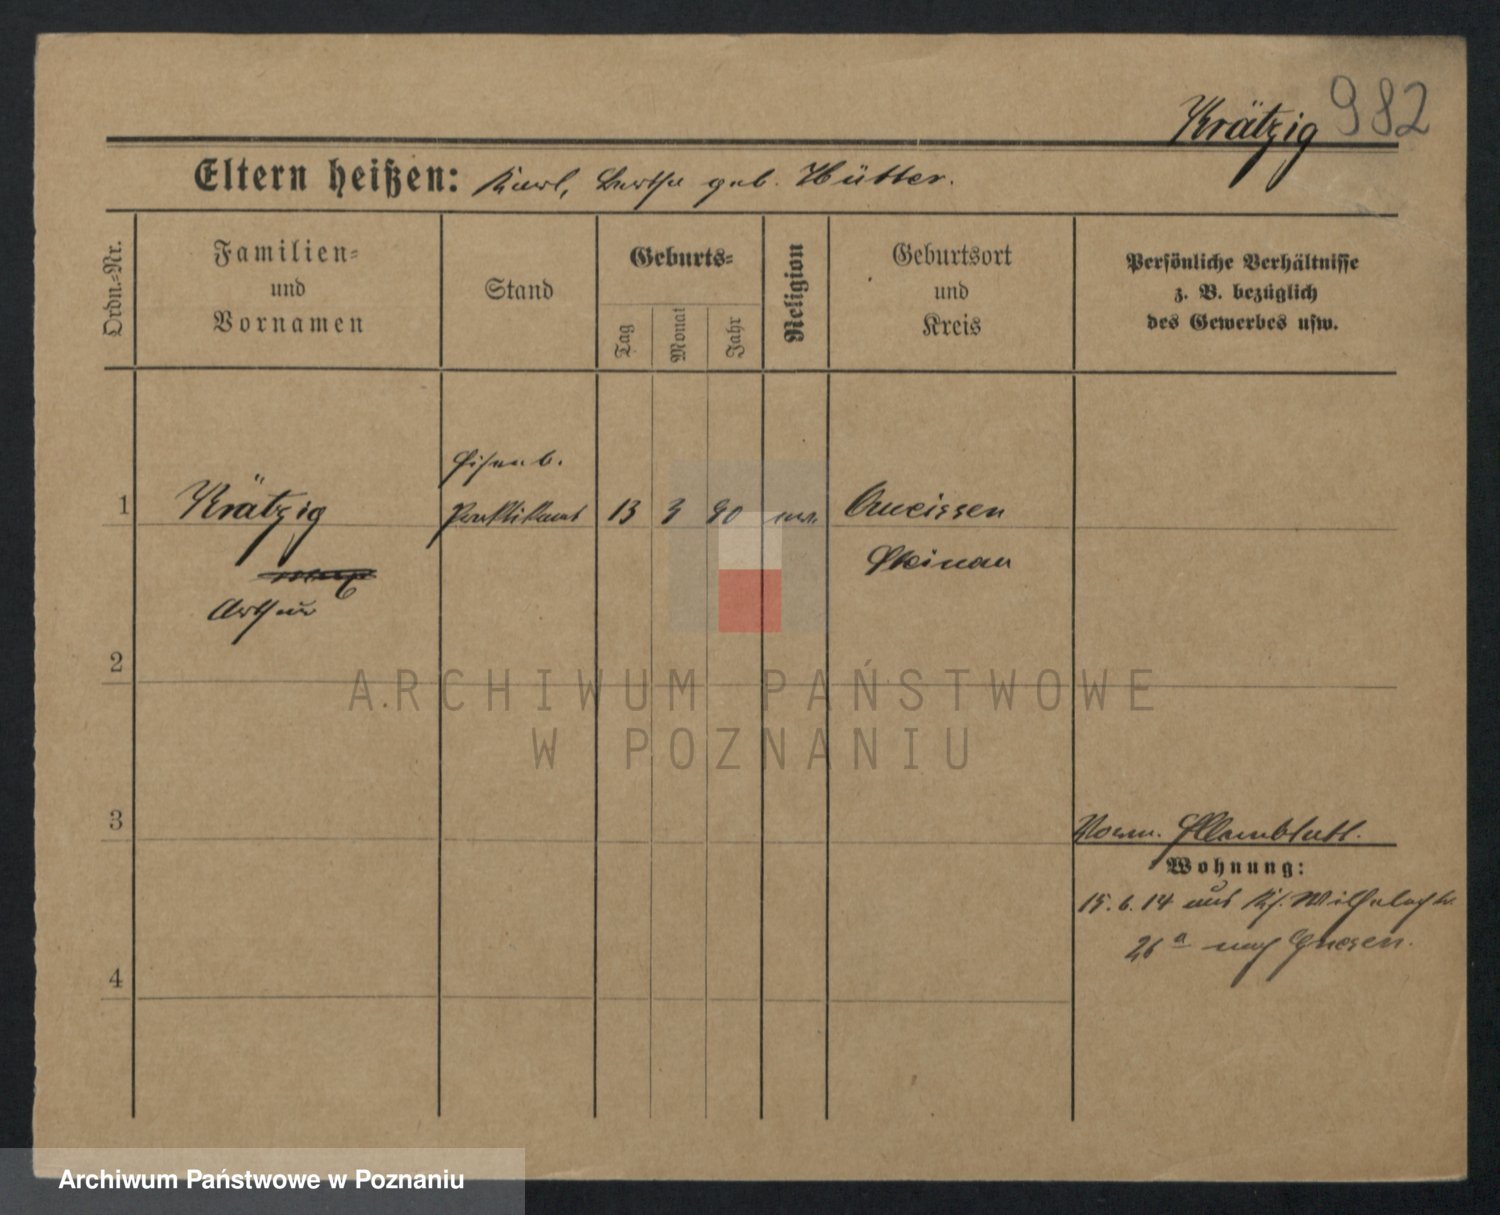 Krätzig 982
Eltern heißen: Karl, Bertha geb. Hütter.
Ordn.-Nr.
Familien-
und
Vornamen
Stand
Geburts-
Tag
Monat
Jahr
Religion
Geburtsort
und
Kreis
Persönliche Verhältnisse
z. B. bezüglich
des Gewerbes usw.
Eisenb.
1 Krätzig Praktikant 13 3 90
Steinau
Arthur
2
ARCHIWUM PAŃSTWOWE
W POZNANIU
3
Wohnung:
15.6.14 aus Wilhelmstr.
26a nach Gnesen.
4
Archiwum Państwowe w Poznaniu